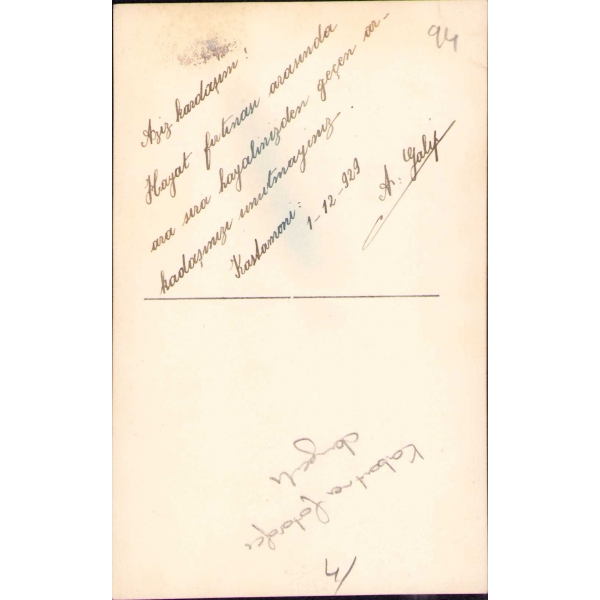 94
Aziz kardaşım!
Hayat fırtınası arasında
ara sıra hayalinizden geçen ar-
kadaşınızı unutmayınız.
Kastamoni:
1-12-929
A. Galip
Kabartma fotoğrafçı
4/